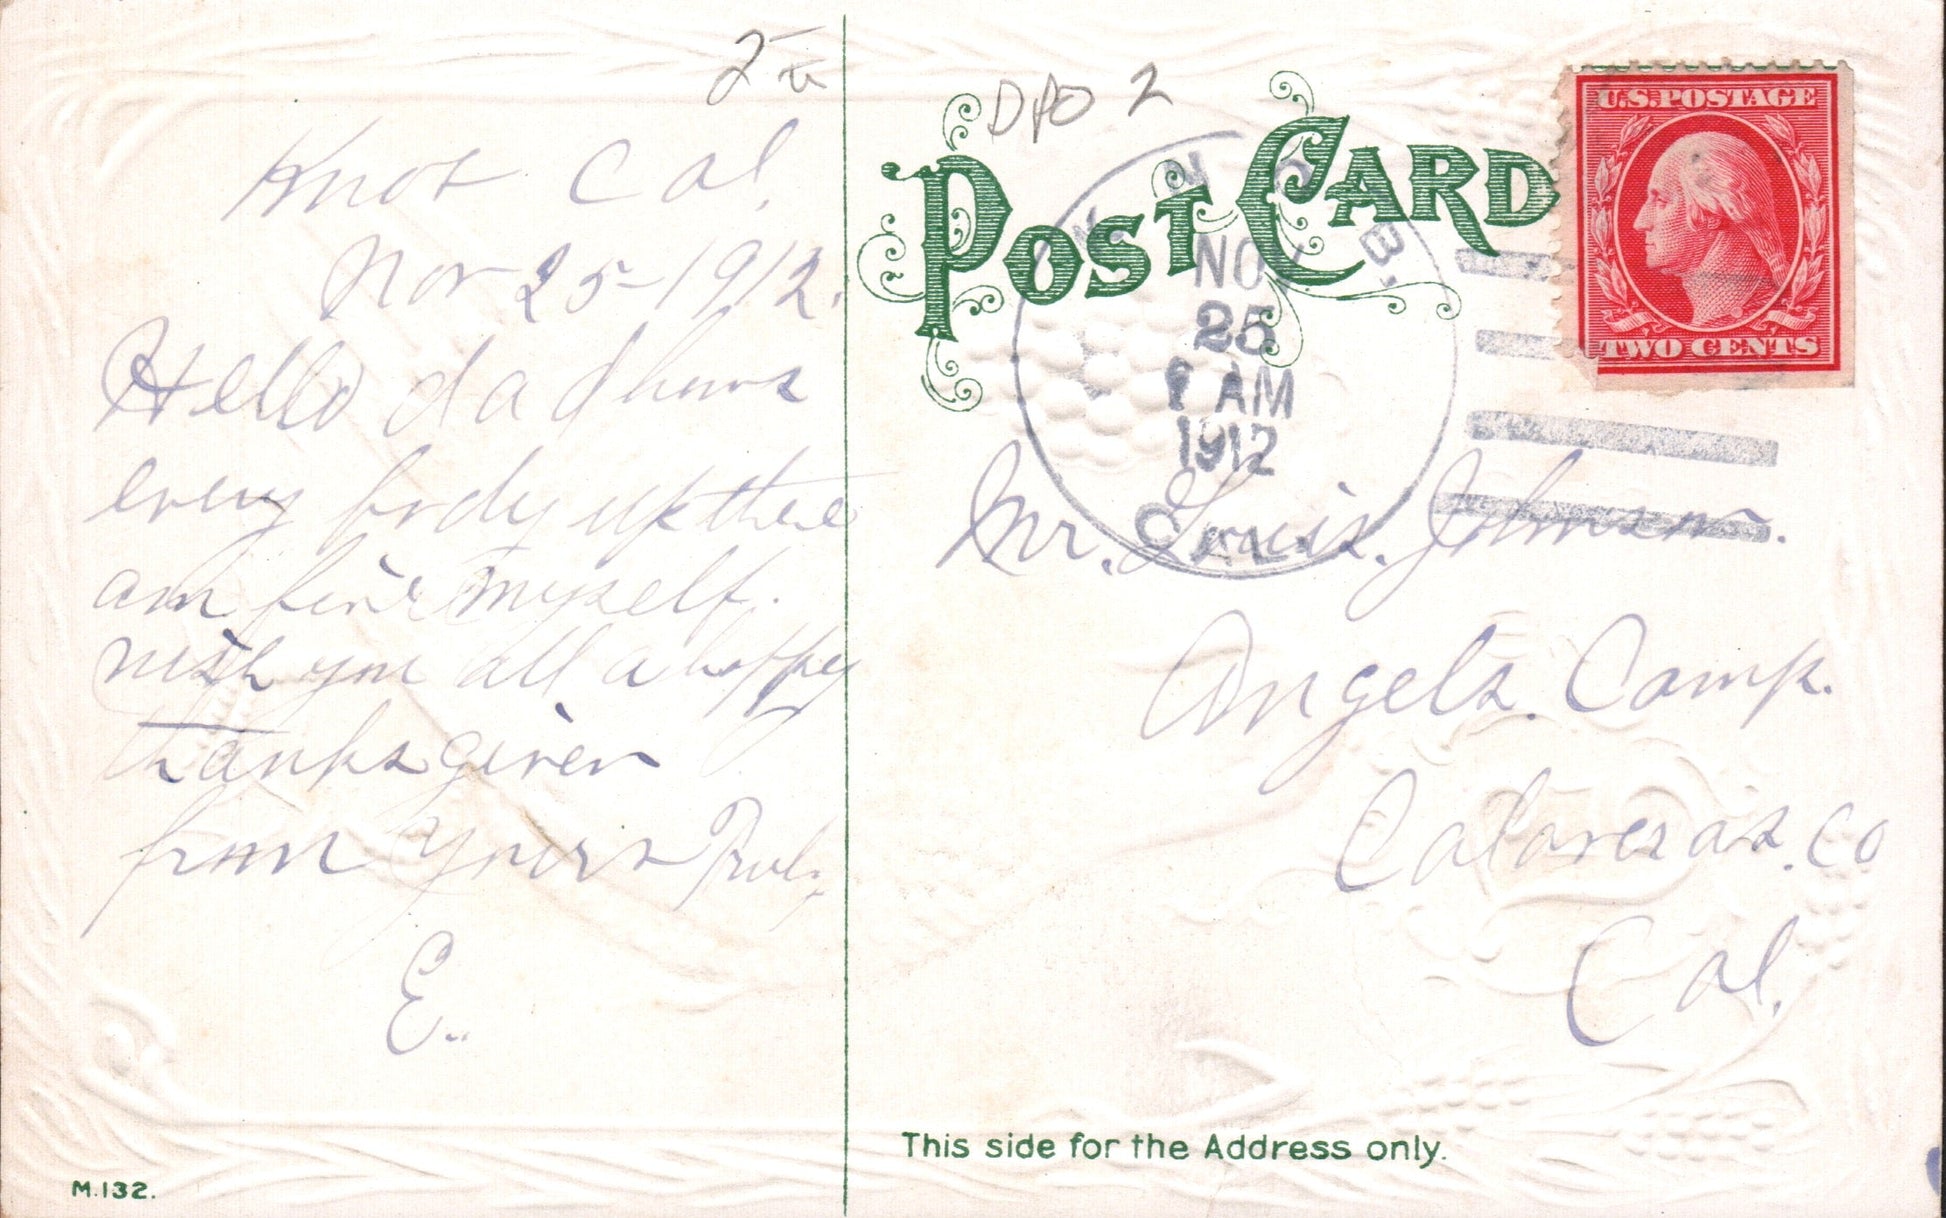 DPO 2
POST CARD
U.S. POSTAGE
TWO CENTS
NOV
25
AM
1912
CAL.
Knob Cal.
Nov 25-1912.
Hello dad hows
every body up there
am fine myself.
wish you all a happy
thanksgiven
from yours Truly
E.
Mr. Louis. Johnson.
Angels. Camp.
Calaveras. Co
Cal.
This side for the Address only.
M.132.